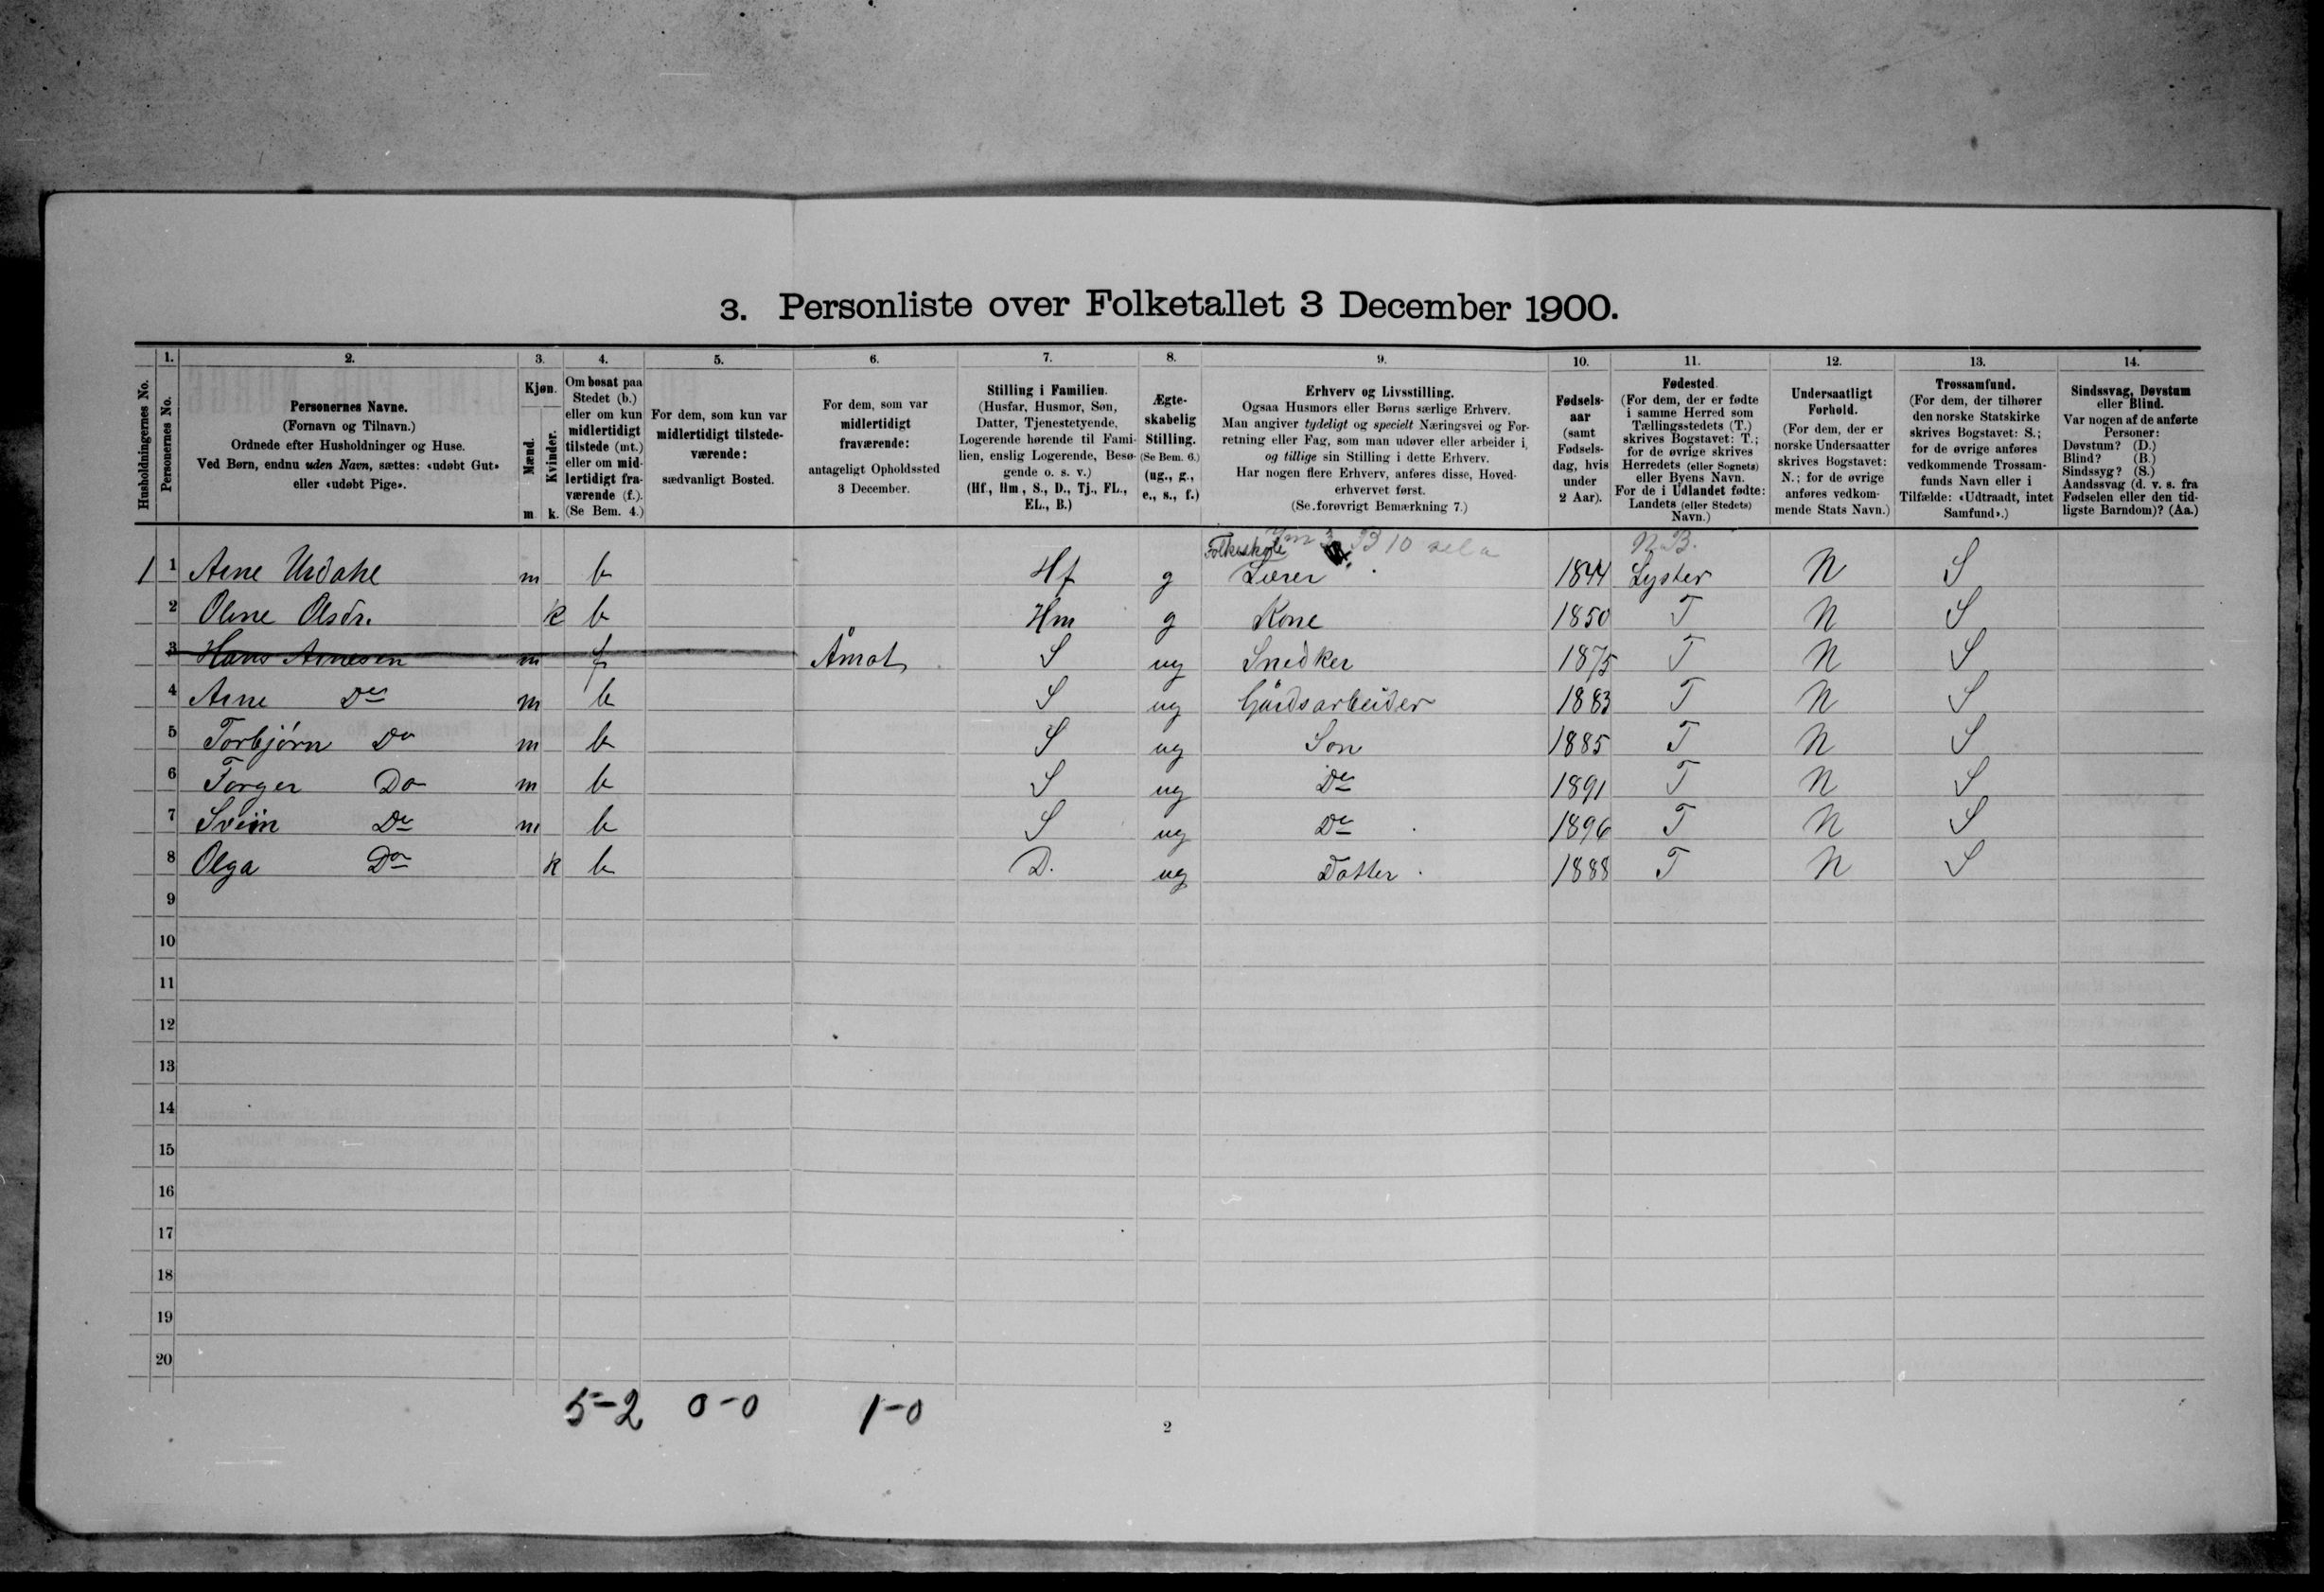 3. Personliste over Folketallet 3 December 1900.
1. 2. 3. 4. 5. 6. 7. 8. 9. 10. 11. 12. 13. 14.
Husholdningernes No.
Personernes No.
Personernes Navne.
(Fornavn og Tilnavn.)
Ordnede efter Husholdninger og Huse.
Ved Børn, endnu uden Navn, sættes: «udøbt Gut»
eller «udøbt Pige».
Kjøn.
Mænd.
Kvinder.
m. k.
Om bosat paa
Stedet (b.)
eller om kun
midlertidigt
tilstede (mt.)
eller om mid-
lertidigt fra-
værende (f.).
(Se Bem. 4.)
For dem, som kun var
midlertidigt tilstede-
værende:
sædvanligt Bosted.
For dem, som var
midlertidigt
fraværende:
antageligt Opholdssted
3 December.
Stilling i Familien.
(Husfar, Husmor, Søn,
Datter, Tjenestetyende,
Logerende hørende til Fami-
lien, enslig Logerende, Besø-
gende o. s. v.)
(Hf, Hm, S., D., Tj., FL.,
EL., B.)
Ægte-
skabelig
Stilling.
(Se Bem. 6.)
(ug., g.,
e., s., f.)
Erhverv og Livsstilling.
Ogsaa Husmors eller Børns særlige Erhverv.
Man angiver tydeligt og specielt Næringsvei og For-
retning eller Fag, som man udøver eller arbeider i,
og tillige sin Stilling i dette Erhverv.
Har nogen flere Erhverv, anføres disse, Hoved-
erhvervet først.
(Se forøvrigt Bemærkning 7.)
Fødsels-
aar
(samt
Fødsels-
dag, hvis
under
2 Aar).
Fødested.
(For dem, der er fødte
i samme Herred som
Tællingsstedets (T.)
skrives Bogstavet: T.;
for de øvrige skrives
Herredets (eller Sognets)
eller Byens Navn.
For de i Udlandet fødte:
Landets (eller Stedets)
Navn.)
Undersaatligt
Forhold.
(For dem, der er
norske Undersaatter
skrives Bogstavet:
N.; for de øvrige
anføres vedkom-
mende Stats Navn.)
Trossamfund.
(For dem, der tilhører
den norske Statskirke
skrives Bogstavet: S.;
for de øvrige anføres
vedkommende Trossam-
funds Navn eller i
Tilfælde: «Udtraadt, intet
Samfund».)
Sindssvag, Døvstum
eller Blind.
Var nogen af de anførte
Personer:
Døvstum? (D.)
Blind? (B.)
Sindssyg? (S.)
Aandssvag (d. v. s. fra
Fødselen eller den tid-
ligste Barndom)? (Aa.)
Folkeskole B 10 N.B.
1 1 Arne Urdahl m b Hf g Lærer 1844 Lyster N S
2 Oline Olsdr. k b Hm g Kone 1850 T N S
3 Hans Arnesen m f Åmot S ug Snedker 1875 T N S
4 Arne Do m b S ug Gårdsarbeider 1883 T N S
5 Torbjørn Do m b S ug Søn 1885 T N S
6 Torger Do m b S ug Do 1891 T N S
7 Svein Do m b S ug Do 1896 T N S
8 Olga Do k b D. ug Datter. 1888 T N S
9
10
11
12
13
14
15
16
17
18
19
20
5-2 0-0 1-0
2